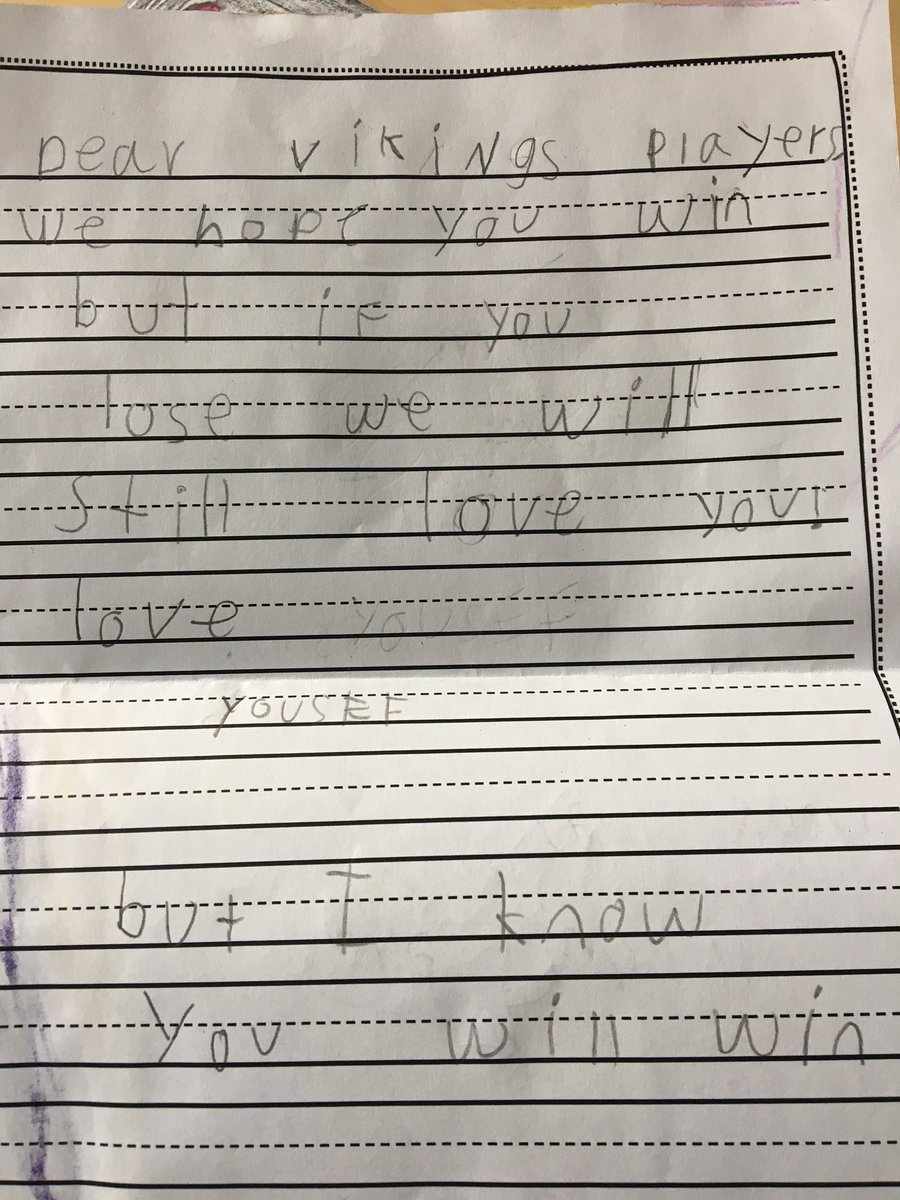 Dear vikiNgs Players
we hope you win
but if you
lose we will
still love you!
love yousef
YOUSEF
but I know
you will win